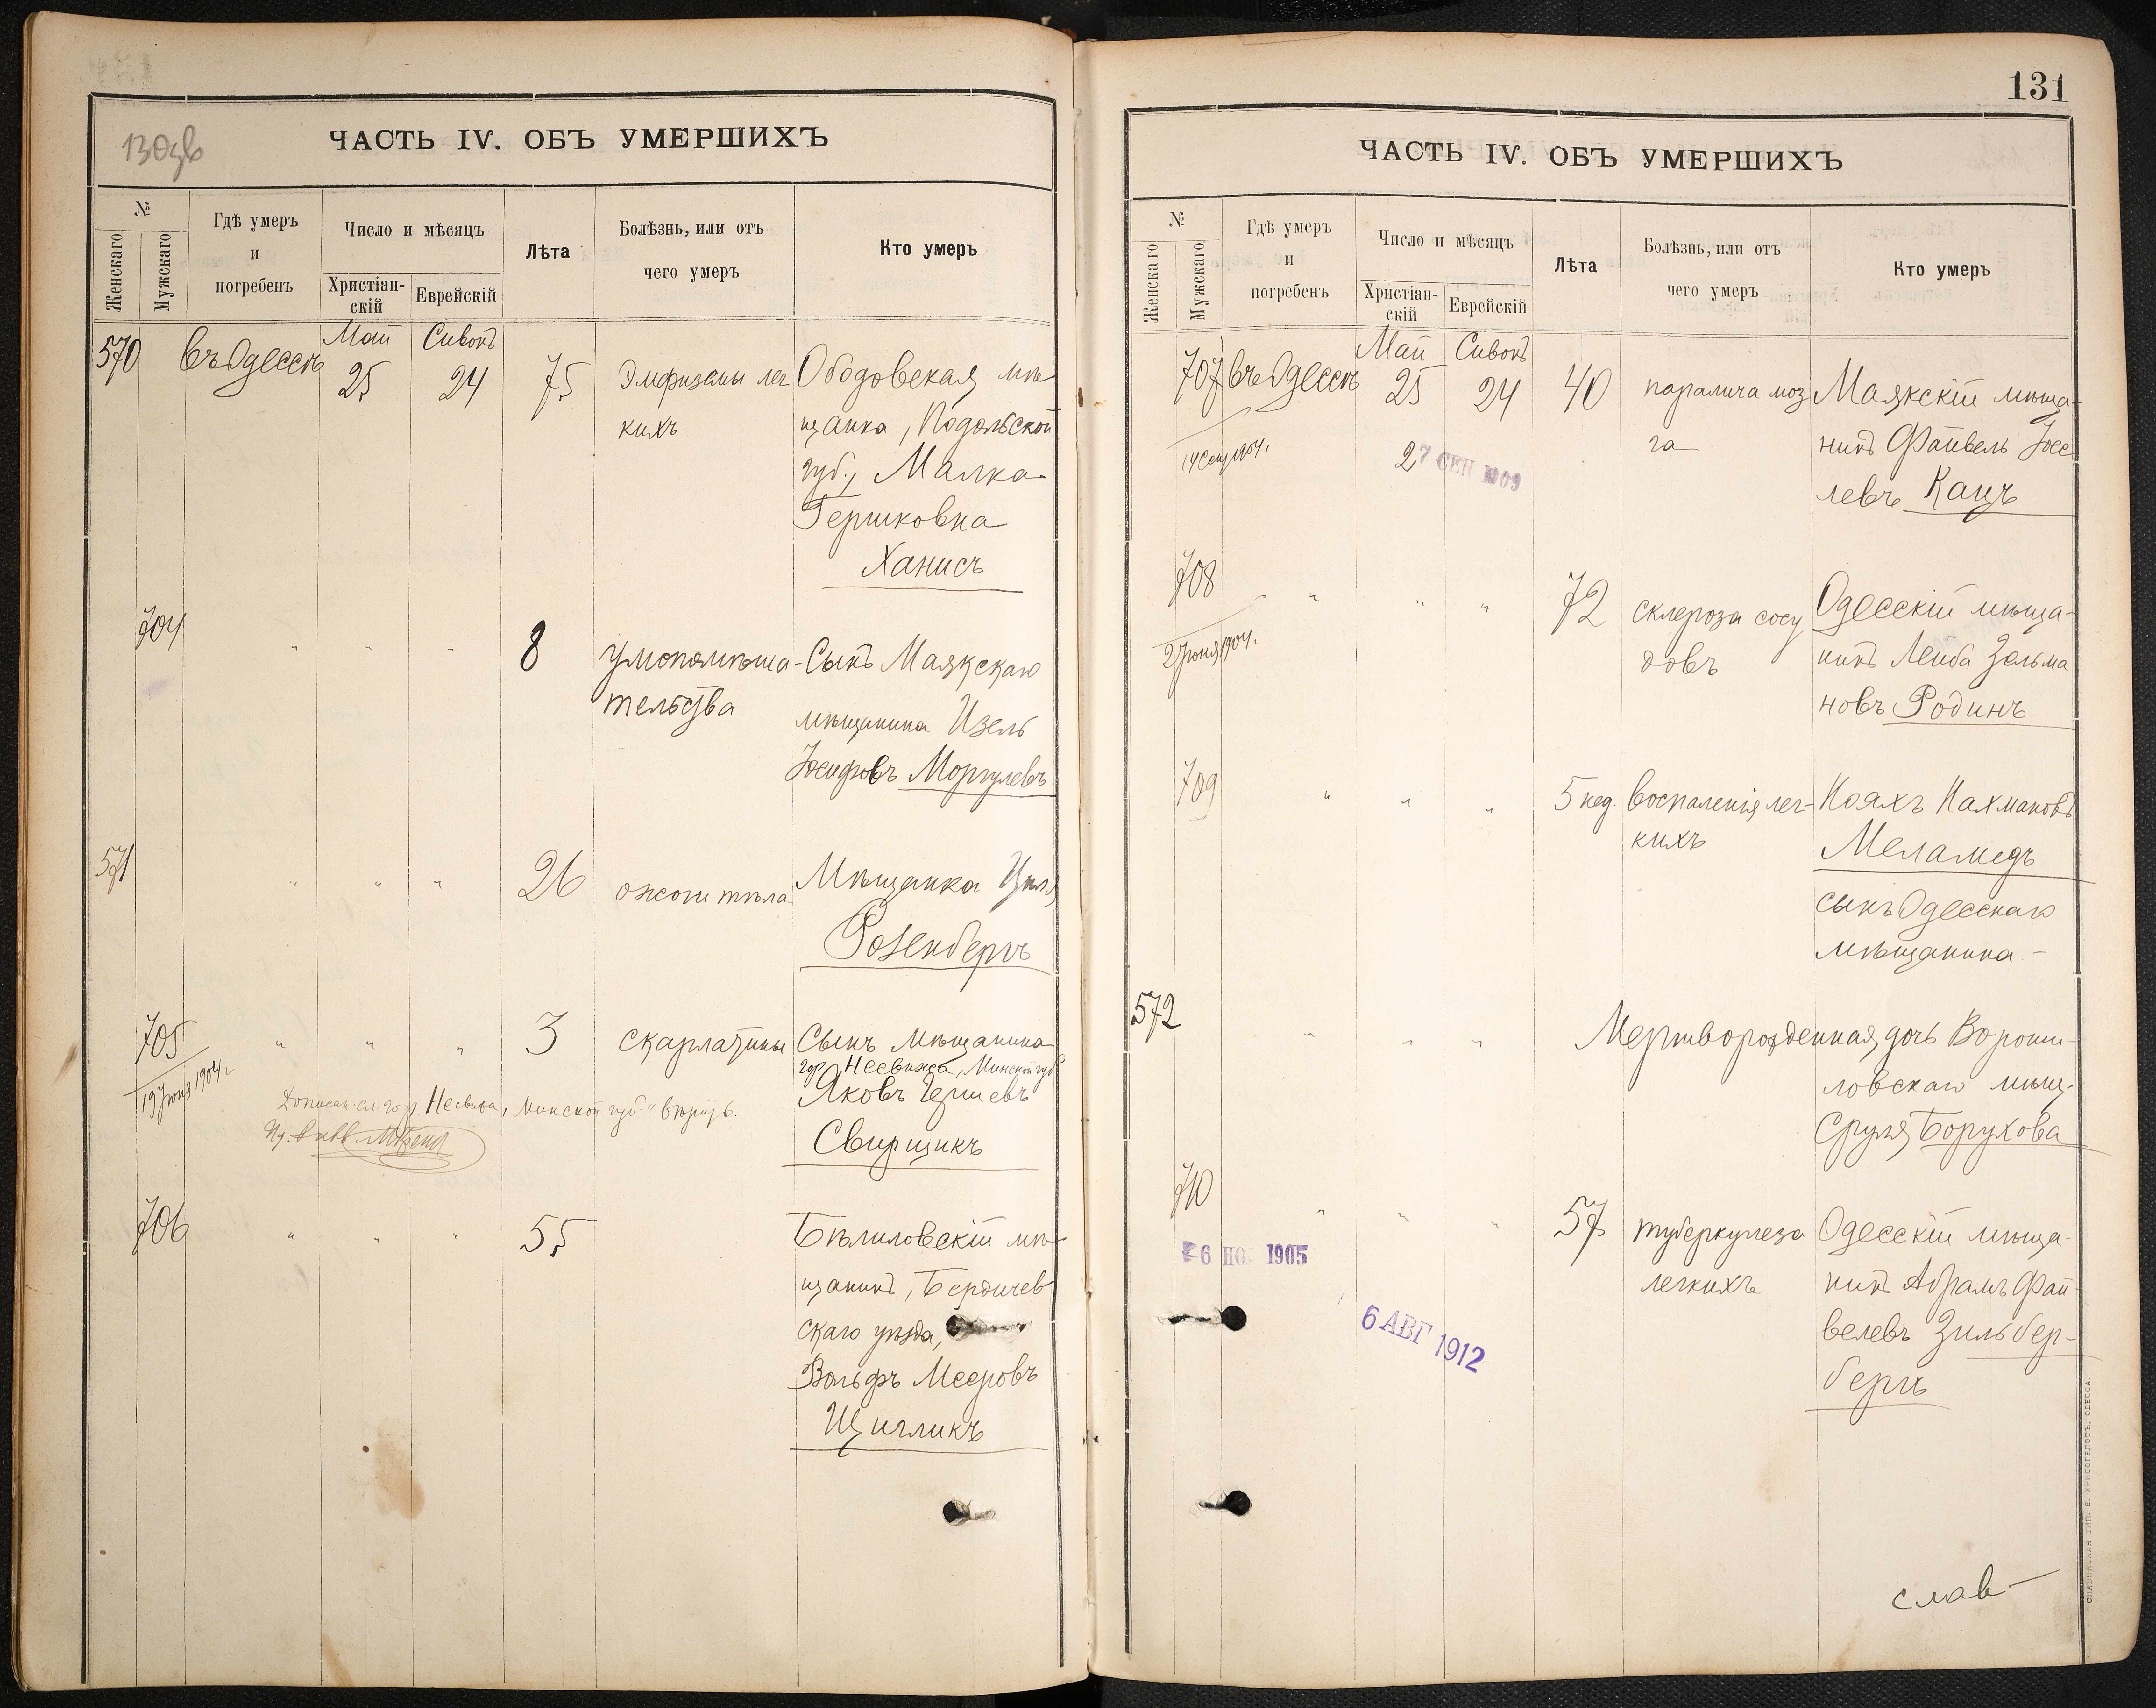 130зв
ЧАСТЬ IV. ОБЪ УМЕРШИХЪ
№
Женскаго
Мужскаго
Гдѣ умеръ
и
погребенъ
Число и мѣсяцъ
Христіан-
скій
Еврейскій
Лѣта
Болѣзнь, или отъ
чего умеръ
Кто умеръ
570
въ Одессѣ
Май
25
Сивонъ
24
75
Эмфиземы лег
кихъ
Ободовская мѣ
щанка, Подольской
губ., Малка
Гершковна
Ханисъ
704
" " "
8
Умопомѣша-
тельства
Сынъ Маякскаго
мѣщанина Изель
Іосифовъ Моргулевъ
571
" " "
26
ожоги тѣла
Мѣщанка Циля
Розенбергъ
705
19 Іюня 1904 г.
" " "
3
скарлатины
Сынъ мѣщанина
гор. Несвижа, Минской губ.
Яковъ Гершевъ
Свирщикъ
Дописан. сл. гор. Несвижа, Минской губ." вѣрить.
706
" " "
55
Бѣлиловскій мѣ-
щанинъ, Бердичев
скаго уѣзда,
Вольфъ Мееровъ
Щигликъ
131
ЧАСТЬ IV. ОБЪ УМЕРШИХЪ
№
Женскаго
Мужскаго
Гдѣ умеръ
и
погребенъ
Число и мѣсяцъ
Христіан-
скій
Еврейскій
Лѣта
Болѣзнь, или отъ
чего умеръ
Кто умеръ
707
14 Сен 1904 г.
въ Одессѣ
Май
25
27 СЕН 1909
Сивонъ
24
40
паралича моз
га
Маякскій мѣща-
нинъ Файвель Іосе
левъ Кацъ
708
2 Іюня 1904 г.
" " "
72
склероза сосу
довъ
Одесскій мѣща-
нинъ Лейба Зельма
новъ Родинъ
709
" " "
5 нед.
воспаленія лег-
кихъ
Ноахъ Нахмановъ
Меламедъ
сынъ Одесскаго
мѣщанина. -
572
" " "
Мертворожденная дочь Вороши-
ловскаго мѣщ.
Сруля Борухова
710
6 НО 1905
6 АВГ 1912
" " "
57
туберкулеза
легкихъ
Одесскій мѣща-
нинъ Абрамъ Фай
велевъ Зильбер-
бергъ
слав
СЛАВЯНСКАЯ ТИП. Е. ХРИСОГЕЛОСЪ, ОДЕССА.